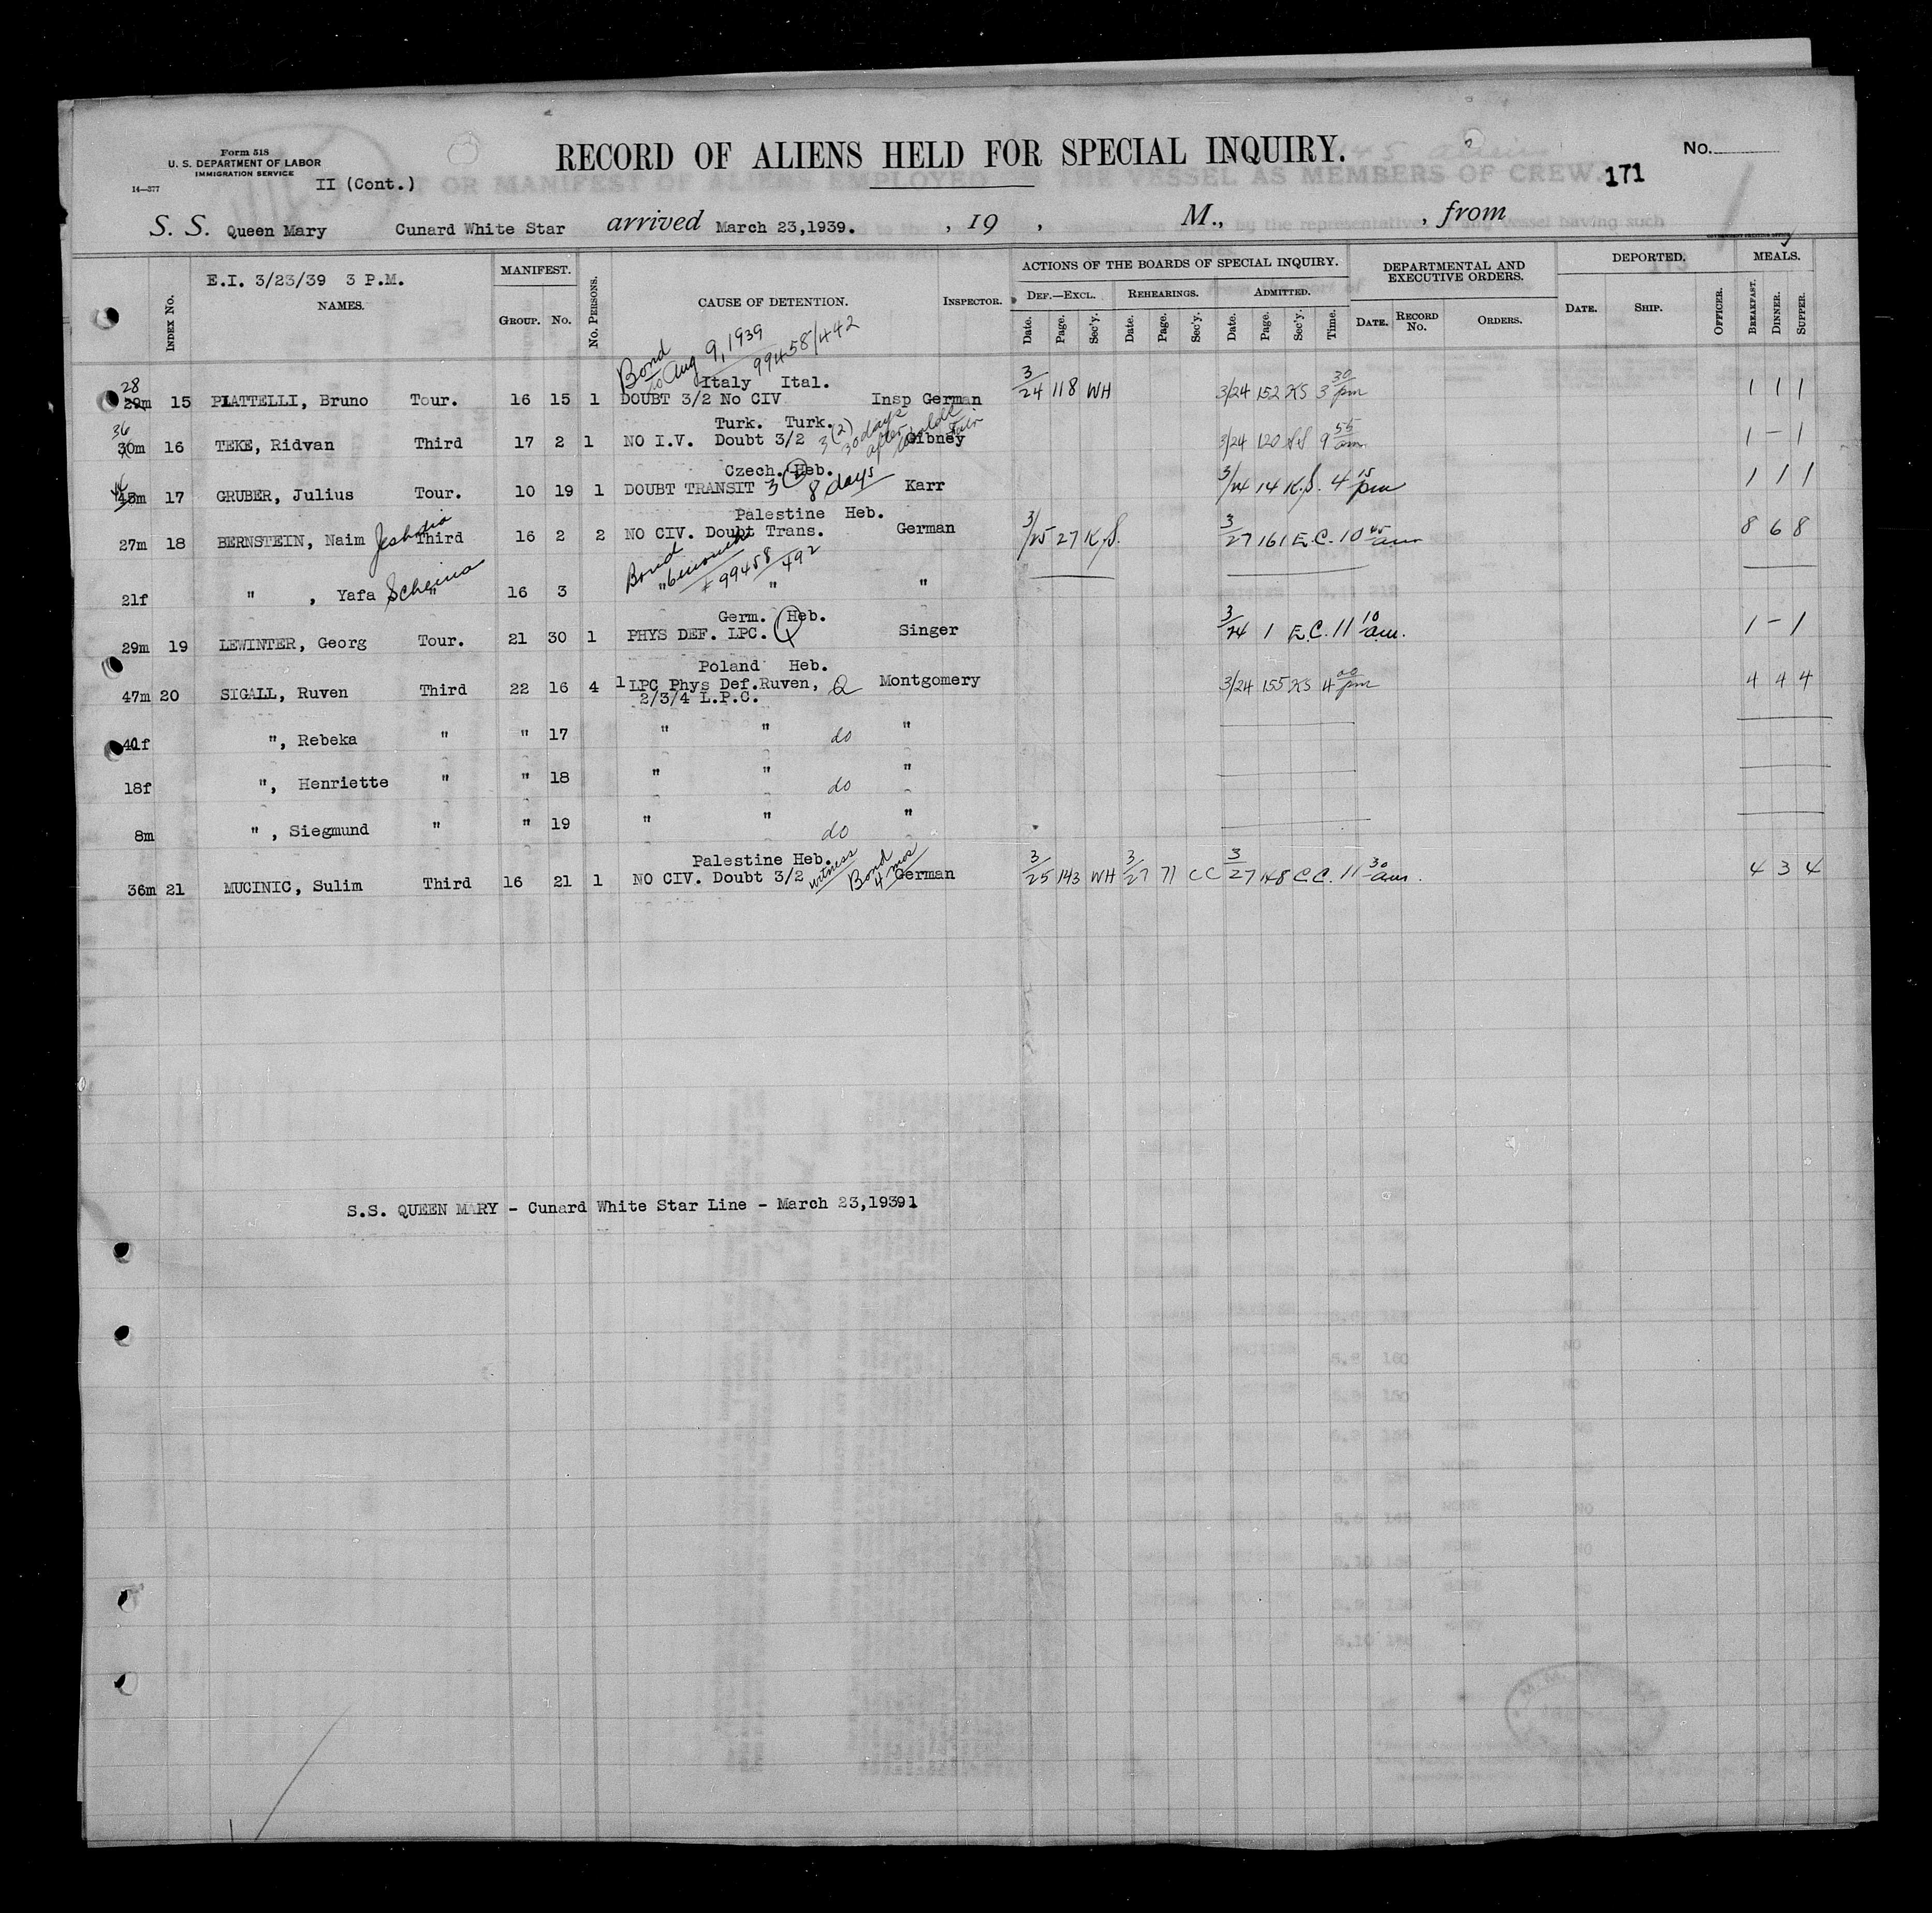 Form 518
U. S. DEPARTMENT OF LABOR
IMMIGRATION SERVICE
14—377
II (Cont.)
RECORD OF ALIENS HELD FOR SPECIAL INQUIRY.
No.
171
S. S. Queen Mary Cunard White Star arrived March 23,1939. , 19 , M., , from
E.I. 3/23/39 3 P.M.
INDEX No. NAMES. MANIFEST. GROUP. No. No. PERSONS. CAUSE OF DETENTION. INSPECTOR. ACTIONS OF THE BOARDS OF SPECIAL INQUIRY. DEPARTMENTAL AND EXECUTIVE ORDERS. DEPORTED. MEALS.
DEF.—EXCL. REHEARINGS. ADMITTED.
Date. Page. Sec'y. Date. Page. Sec'y. Date. Page. Sec'y. Time. DATE. RECORD No. ORDERS. DATE. SHIP. OFFICER. BREAKFAST. DINNER. SUPPER.
Bond to Aug 9, 1939 99458/442
Italy Ital.
28 29m 15 PIATTELLI, Bruno Tour. 16 15 1 DOUBT 3/2 No CIV Insp German 3/24 118 WH 3/24 152 KS 3 30 pm 1 1 1
Turk. Turk.
36 30m 16 TEKE, Ridvan Third 17 2 1 NO I.V. Doubt 3/2 3(2) 30 days after Worlds Fair Gibney 3/24 120 9 55 am 1 – 1
Czech. Heb.
17 GRUBER, Julius Tour. 10 19 1 DOUBT TRANSIT 3(2) 8 days Karr 3/24 14 K.S. 4 15 pm 1 1 1
Palestine Heb.
27m 18 BERNSTEIN, Naim Third 16 2 2 NO CIV. Doubt Trans. German 3/25 27 K.S. 3/27 161 E.C. 10 45 am 8 6 8
Bond 6 months 99458/492
21f " , Yafa Scheina " 16 3 " " "
Germ. Heb.
29m 19 LEWINTER, Georg Tour. 21 30 1 PHYS DEF. LPC. Q Singer 3/24 1 E.C. 11 10 am. 1 – 1
Poland Heb.
47m 20 SIGALL, Ruven Third 22 16 4 1 LPC Phys Def.Ruven, Q Montgomery 3/24 155 KS 4 00 pm 4 4 4
2/3/4 L.P.C.
41f ", Rebeka " " 17 " " do "
18f ", Henriette " " 18 " " do "
8m " , Siegmund " " 19 " " do "
Palestine Heb.
36m 21 MUCINIC, Sulim Third 16 21 1 NO CIV. Doubt 3/2 witness Bond 4 mos German 3/25 143 WH 3/27 71 CC 3/27 148 C.C. 11 30 am. 4 3 4
S.S. QUEEN MARY - Cunard White Star Line - March 23,19391